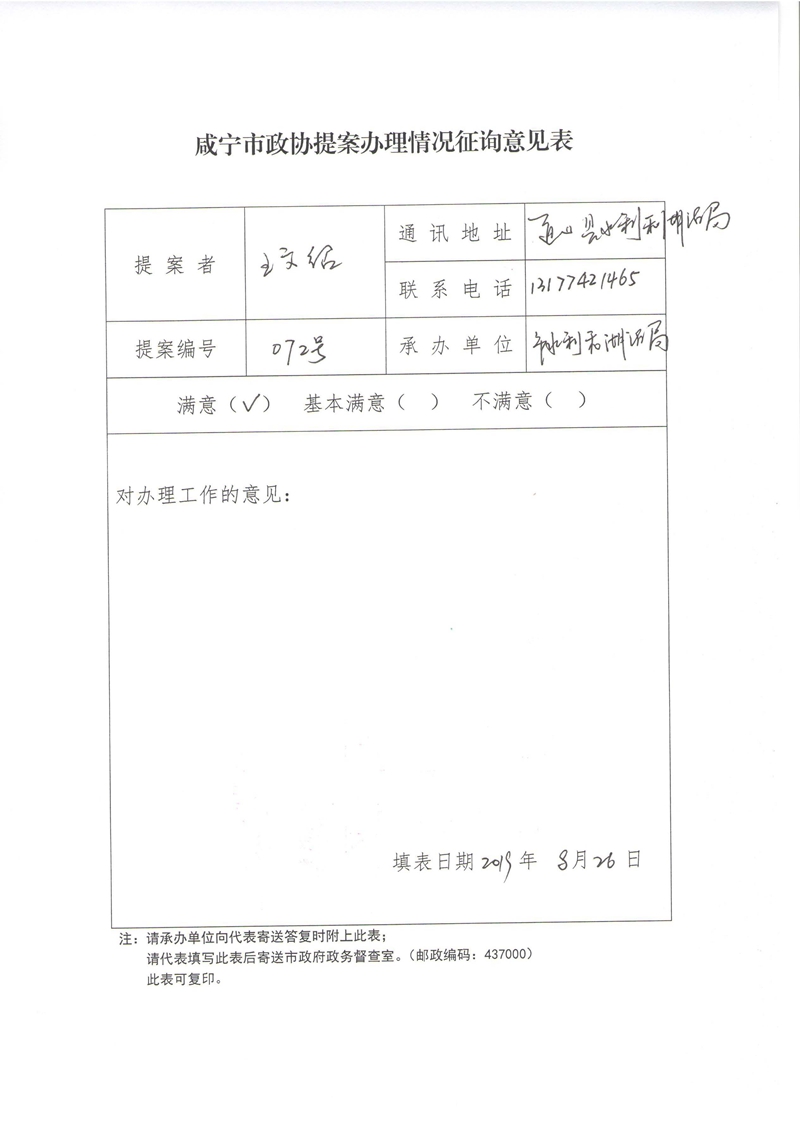 咸宁市政协提案办理情况征询意见表
提案者 王文绍 通讯地址 通山县水利和湖泊局
联系电话 13177421465
提案编号 072号 承办单位 市水利和湖泊局
满意(√) 基本满意( ) 不满意( )
对办理工作的意见:
填表日期 2019 年 8月26日
注：请承办单位向代表寄送答复时附上此表；
请代表填写此表后寄送市政府政务督查室。（邮政编码：437000）
此表可复印。